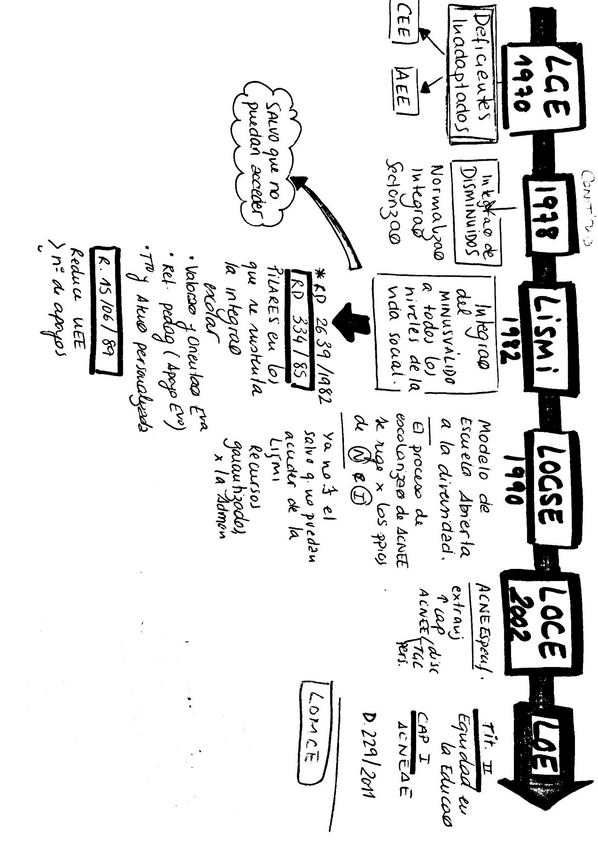 LGE
1970
Deficientes
Inadaptados
CEE
AEE
CONTINUO
1978
Integrao de
DISMINUIDOS
Normalizao
Integrao
Sectorizao
LISMI
1982
Integrao
del
MINUSVÁLIDO
a todos los
niveles de la
vida social.
SALVO que no
puedan acceder
* RD 2639/1982
RD 334/85
PILARES en los
que se sustenta
la integrao
escolar
· Valorao y Orientao Eva
· Ref. pedag (Apoyo Evo)
· TTO y Atcio personalizada
R. 15/06/89
Reduce UEE
> nº de apoyos
LOGSE
1990
Modelo de
Escuela Abierta
a la diversidad.
El proceso de
escolarizao de ACNEE
se rige x los ppios
de N e I
Ya no ∃ el
salvo q no puedan
acceder de la
LISMI
Recursos
garantizados
x la Admon
LOCE
2002
ACNEEspecíf.
extranj
↑ cap
ACNEE (disc
TGC
pers.
LOE
Tít. II
Equidad en
la Educao
CAP I
ACNEAE
D. 229/2011
LOMCE